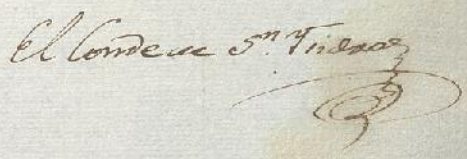 El Conde de S.n Isidro